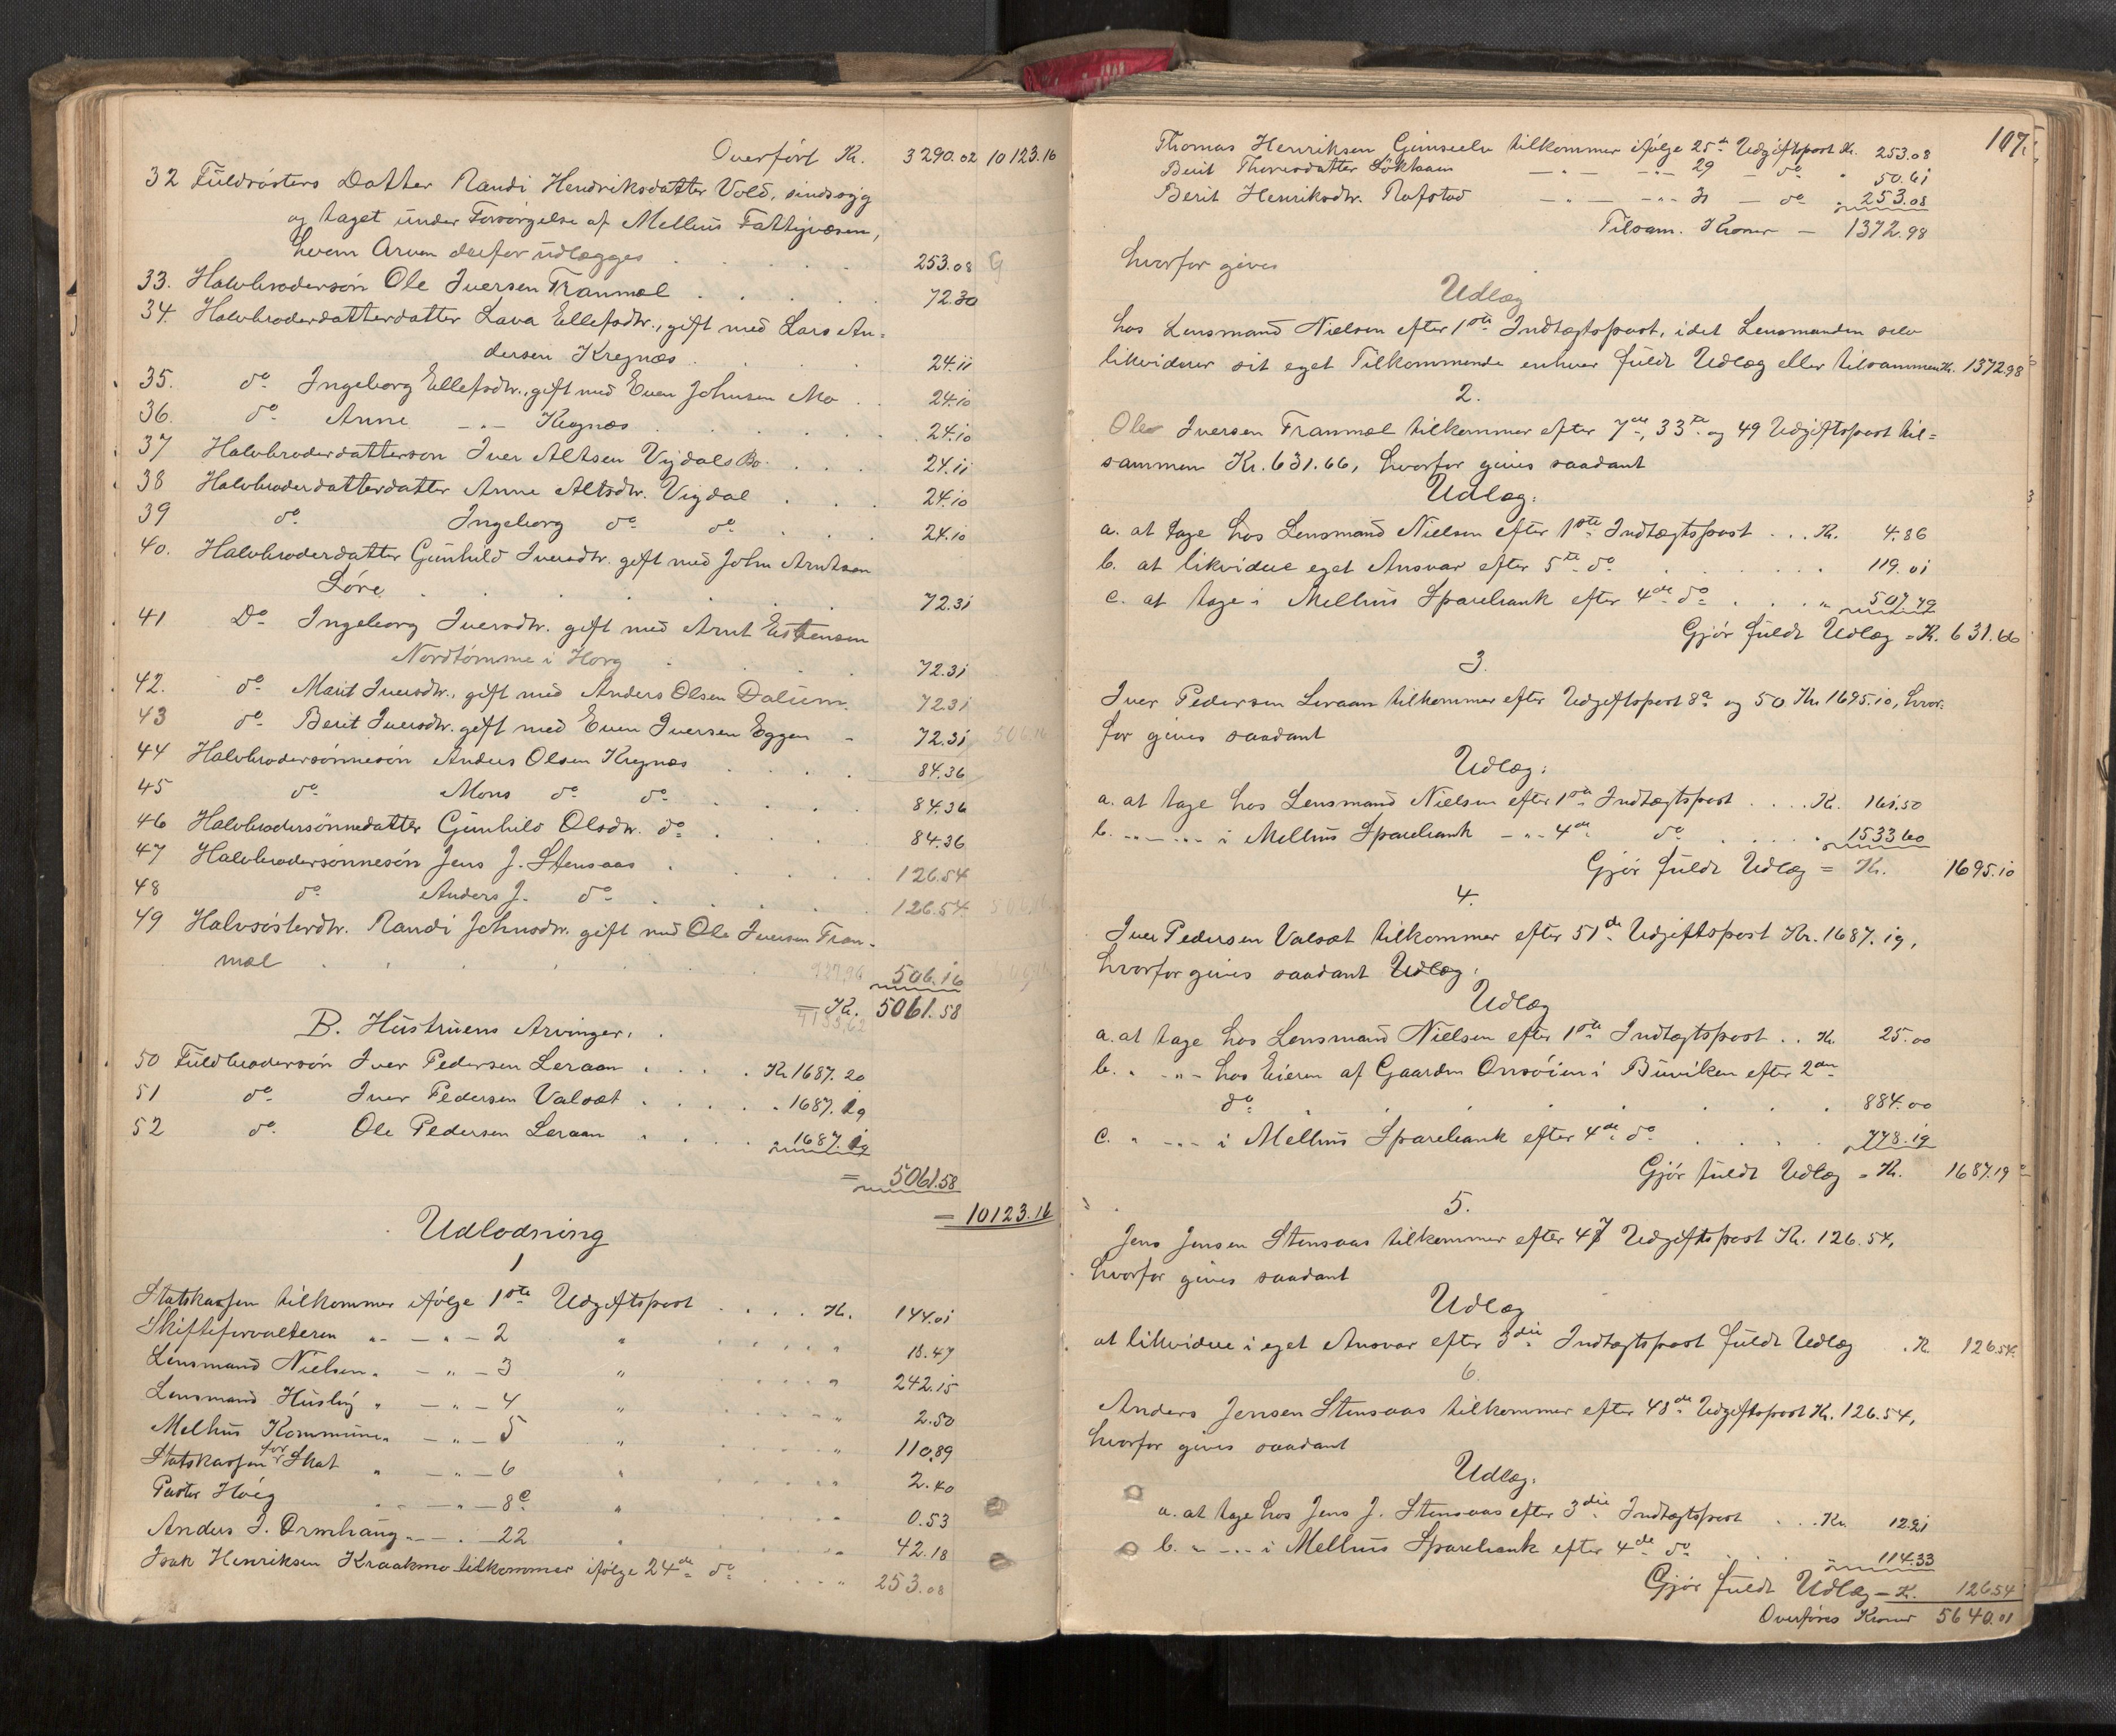 Overført Kr. 3290.02 10123.16
32 Fuldsösters Datter Randi Hendriksdatter Vold, sindssyg
og taget under Forsörgelse af Melhus Fattigvæsen,
hvem Arven derfor udlægges . . . . . 253.08 G
33. Halvbrodersön Ole Iversen Tranmæl . . . . . 72.30
34. Halvbroderdatterdatter Lava Ellefsdtr., gift med Lars An-
dersen Kregnæs . . . 24.11
35. do Ingeborg Ellefsdtr., gift med Even Johnsen Mo . . 24.10
36. do Anne -„- Kregnæs . . . . . . 24.10
37 Halvbroderdatterson Iver Altsen Vigdals Bo. . . . 24.11
38 Halvbroderdatterdatter Anne Altsdtr. Vigdal . . . 24.10
39 do Ingeborg do do . . . . 24.10
40. Halvbroderdatter Gunhild Iversdtr. gift med John Arntsen
Löre . . . . . . . 72.31
41 Do Ingeborg Iversdtr. gift med Arnt Estensen
Nordtömme i Horg . . . . 72.31
42. do Marit Iversdtr., gift med Anders Olsen Dalum. 72.31
43 do Berit Iversdtr. gift med Even Iversen Eggen - 72.31 506.16
44 Halvbrodersönnesön Anders Olsen Kregnæs . . . . 84.36
45 do Mons do do . . . . . 84.36
46 Halvbrodersönnedatter Gunhild Olsdtr. do . . . . 84.36
47 Halvbrodersönnesön Jens J. Stensaas . . . . . 126.54
48 do Anders J. do . . . . . 126.54 506.16
49 Halvsösterdtr. Randi Johnsdtr. gift med Ole Iversen Tran-
mæl . . . . . . . 506.16
= Kr. 5061.58
B. Hustruens Arvinger. .
50 Fuldbrodersön Iver Pedersen Leraan . . . . Kr 1687.20
51 do Iver Pedersen Valsæt . . . . . „ 1687.19
52 do Ole Pedersen Leraan . . . . „ 1687.19
= 5061.58
= 10123.16
Udlodning
1
Statskassen tilkommer ifølge 1ste Udgiftspost . . . . Kr. 144.01
Skifteforvalteren „ - „ - 2 „ . . . . „ 18.47
Lensmand Nielsen „ - „ - 3 „ . . . . „ 242.15
Lensmand Husby „ - „ - 4 „ . . . „ 2.50
Melhus Kommune „ - „ - 5 „ . . . . „ 110.89
Statskassen for Skat „ - „ - 6 „ . . . . „ 2.40
Pastor Höeg „ - „ - 8c „ . . . . „ 0.53
Anders J. Ormhaug „ - . 22 „ . . . . „ 42.18
Isak Henriksen Kraakmo tilkommer ifølge 24de do . . . . „ 253.08
107.
Thomas Henriksen Gimselv tilkommer ifølge 25de Udgiftspost Kr. 253.08
Berit Thoresdatter Lökhaan - „ - - „ - 29 - do „ 50.61
Berit Henriksdtr. Rafstad - „ - - „ - 31 - do „ 253.08
Tilsam. Kroner - 1372.98
hvorfor gives
Udlæg
hos Lensmand Nielsen efter 1ste Indtægtspost, idet Lensmanden selv
likviderer sit eget Tilkommende enhver fuldt Udlæg eller tilsammen Kr. 1372.98
2.
Ole Iversen Tranmæl tilkommer efter 7de, 33te og 49 Udgiftspost til-
sammen Kr. 631.66, hvorfor gives saadant
Udlæg:
a. at tage hos Lensmand Nielsen efter 1ste Indtægtspost . . . Kr. 4.86
b. at likvidere eget Ansvar efter 5te do . . . . . . . 119.01
c. at tage i Melhus Sparebank efter 4de do . . . . „ 507.79
Gjör fuldt Udlæg = Kr. 631.66
3.
Iver Pedersen Leraan tilkommer efter Udgiftspost 8a og 50 Kr. 1695.10, hvor-
for gives saadant
Udlæg:
a. at tage hos Lensmand Nielsen efter 1ste Indtægtspost . . . . Kr. 161.50
b. „ - „ - i Melhus Sparebank - „ - 4de do . . . . . „ 1533.60
Gjör fuldt Udlæg = Kr. 1695.10
4.
Iver Pedersen Valsæt tilkommer efter 51de Udgiftspost Kr. 1687.19,
hvorfor gives saadant Udlæg:
Udlæg
a. at tage hos Lensmand Nielsen efter 1ste Indtægtspost . . Kr. 25.00
b. „ - „ - hos Eieren af Gaarden Onsöien i Buviken efter 2den
do . . . . . . . . 884.00
c. „ - „ - i Melhus Sparebank efter 4de do . . . . 778.19
Gjör fuldt Udlæg = Kr. 1687.19
5.
Jens Jensen Stensaas tilkommer efter 47 Udgiftspost Kr. 126.54,
hvorfor gives saadant
Udlæg
at likvidere i eget Ansvar efter 3die Indtægtspost fuldt Udlæg . Kr. 126.54.
6.
Anders Jensen Stensaas tilkommer efter 48de Udgiftspost Kr. 126.54,
hvorfor gives saadant
Udlæg:
a. at tage hos Jens J. Stensaas efter 3die Indtægtspost . . . Kr. 12.21
b. „ - „ - i Melhus Sparebank efter 4de do . . . . „ 114.33
Gjör fuldt Udlæg = Kr. 126.54
Overføres Kroner 5640.01